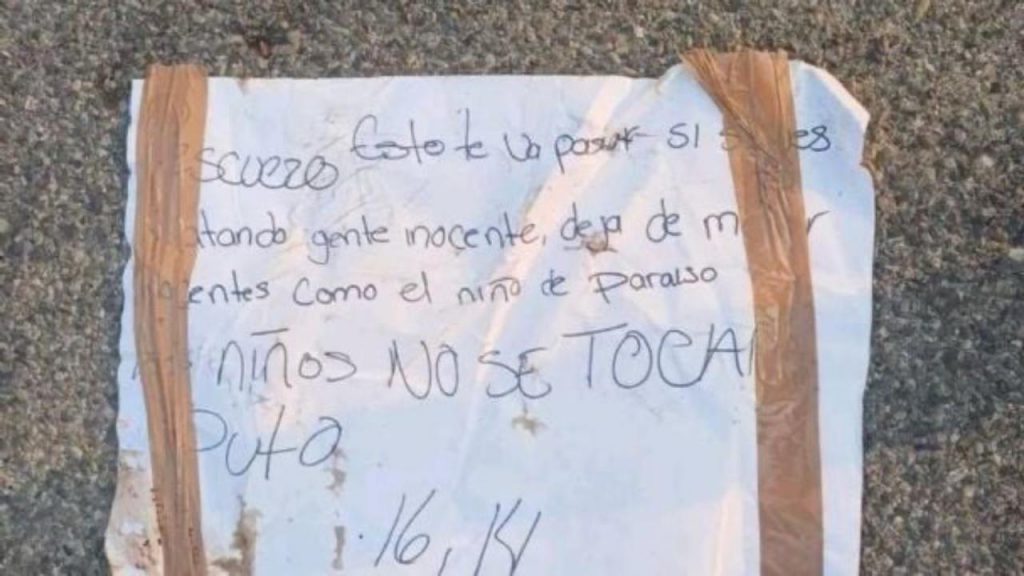 Esto te va pasar si
scuezo
atando gente inocente, deja de
entes como el niño de Paraiso
niños NO SE TOCAN
Puto
16, 14